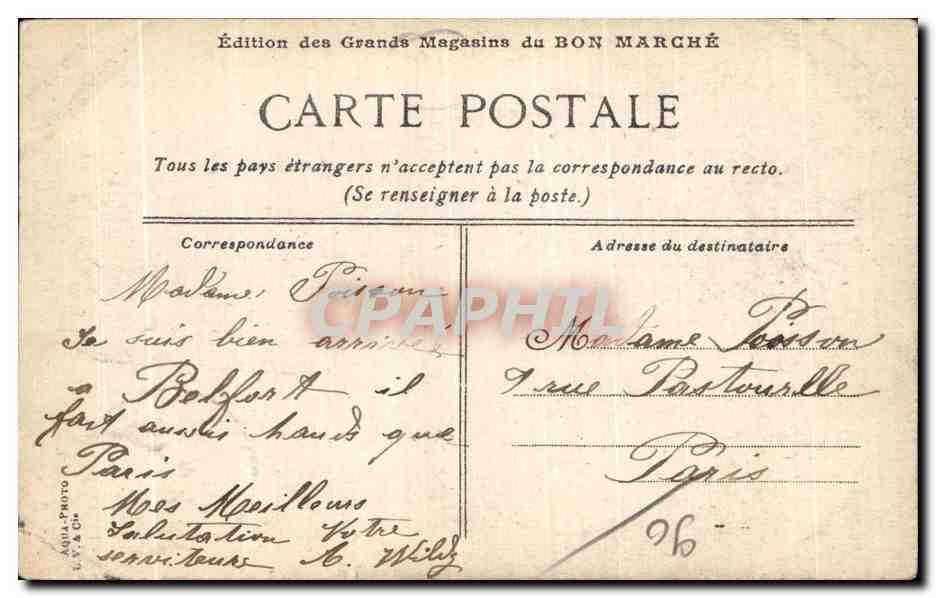 Édition des Grands Magasins du BON MARCHÉ
CARTE POSTALE
Tous les pays étrangers n'acceptent pas la correspondance au recto.
(Se renseigner à la poste.)
Correspondance
Madame, Poisson
Je suis bien arrivée
a Belfort il
fait aussis hauds que
Paris
Mes Meilleurs
Salutation Votre
serviteure A.
Adresse du destinataire
Madame Poisson
9 rue Pastourelle
Paris
96
AQUA-PHOTO
L.V. & Cie
CPAPHIL